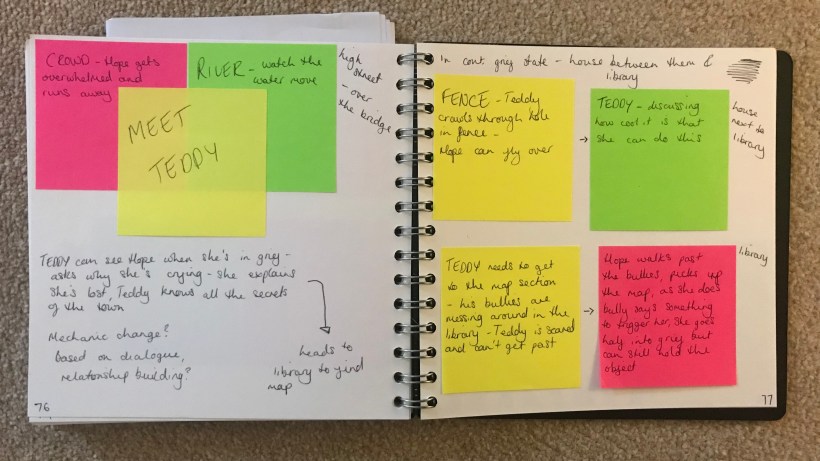 CROWD - Hope gets
overwhelmed and
runs away
RIVER - watch the
water move
high
street
- over
the bridge
MEET
TEDDY
TEDDY can see Hope when she's in grey -
asks why she's crying - she explains
she's lost, Teddy knows all the secrets
of the town
Mechanic change?
Based on dialogue,
relationship building?
heads to
library to find
map
76
In cont. grey state - house between them &
library
FENCE - Teddy
crawls through hole
in fence -
Hope can fly over
TEDDY - discussing
how cool it is that
she can do this
house
next to
library
TEDDY needs to get
to the map section
- his bullies are
messing around in the
library - Teddy is scared
and can't get past
Hope walks past
the bullies, picks up
the map, as she does
bully says something
to trigger her, she goes
half into grey but
can still hold the
object
library
77